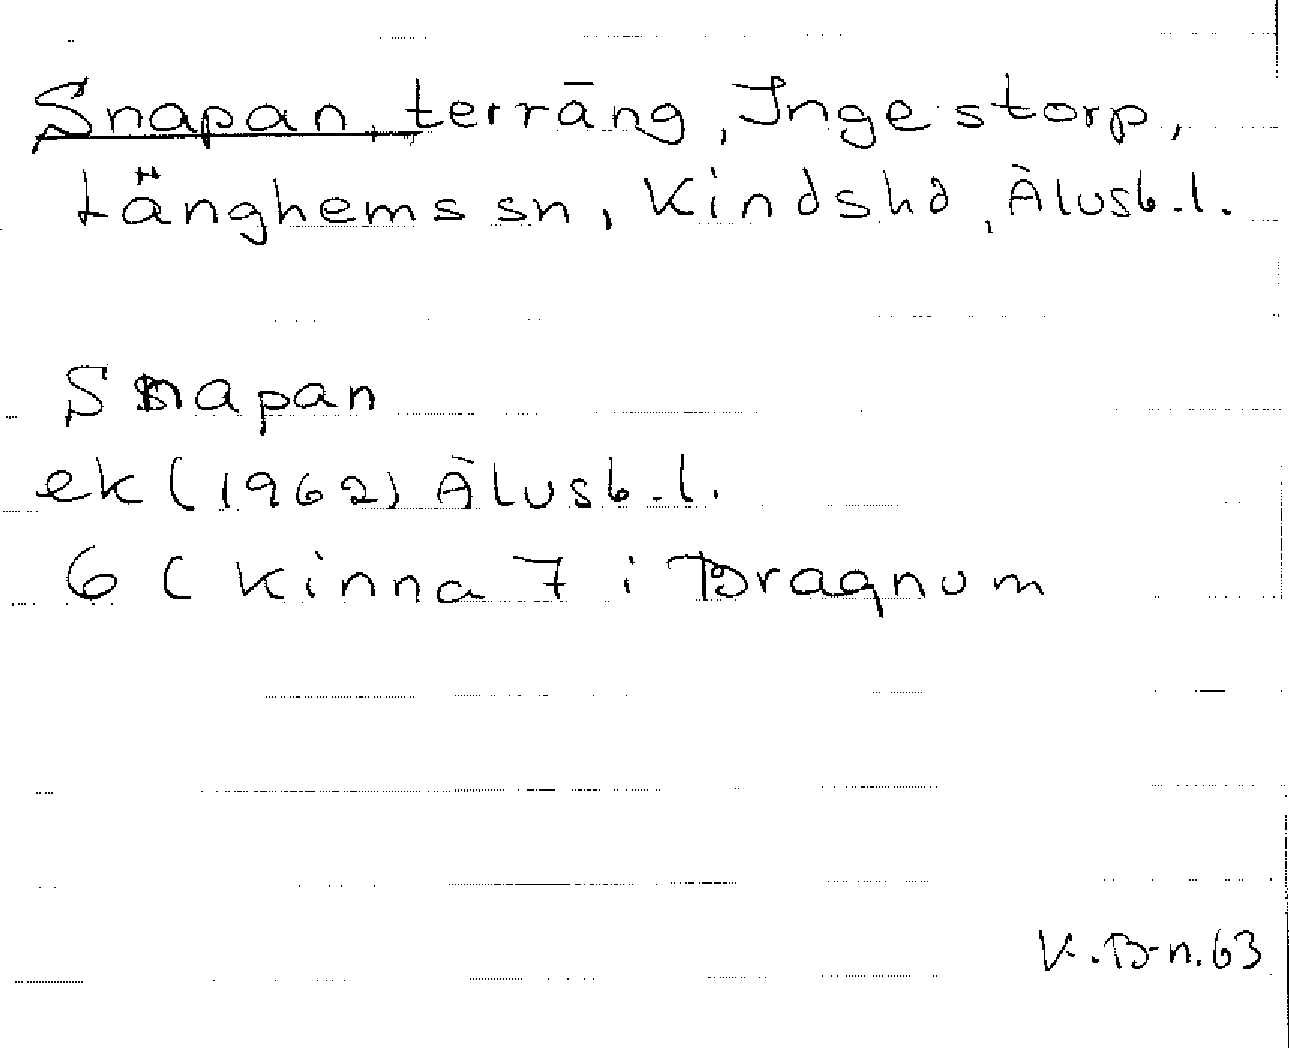 Snapan, terräng, Ingestorp,
Länghems sn, Kindshd, Älvsb.l.
Snapan
ek (1962) Älvsb.l.
6 ( Kinna 7 i Bragnum
K.B-n.63